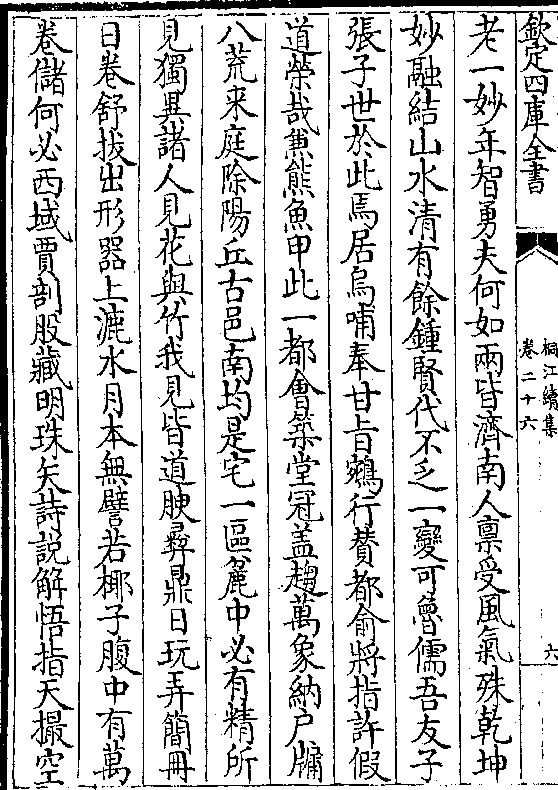 欽定四庫全書
桐江續集
卷二十六
六
老一妙年智勇夫何如兩皆濟南人禀受風氣殊乾坤
妙融結山水清有餘鍾賢代不乏一變可魯儒吾友子
張子世於此焉居烏哺奉甘旨鵷行賛都俞將指許假
道榮哉兼熊魚甲此一都會築堂冠盖趨萬象納戶牖
八荒来庭除陽丘古邑南均是宅一區麄中必有精所
見獨異諸人見花與竹我見皆道腴彛鼎日玩弄簡冊
日卷舒拔出形器上漉水月本無譬若椰子腹中有萬
卷儲何必西域賈剖股藏明珠矢詩說解悟指天撮空